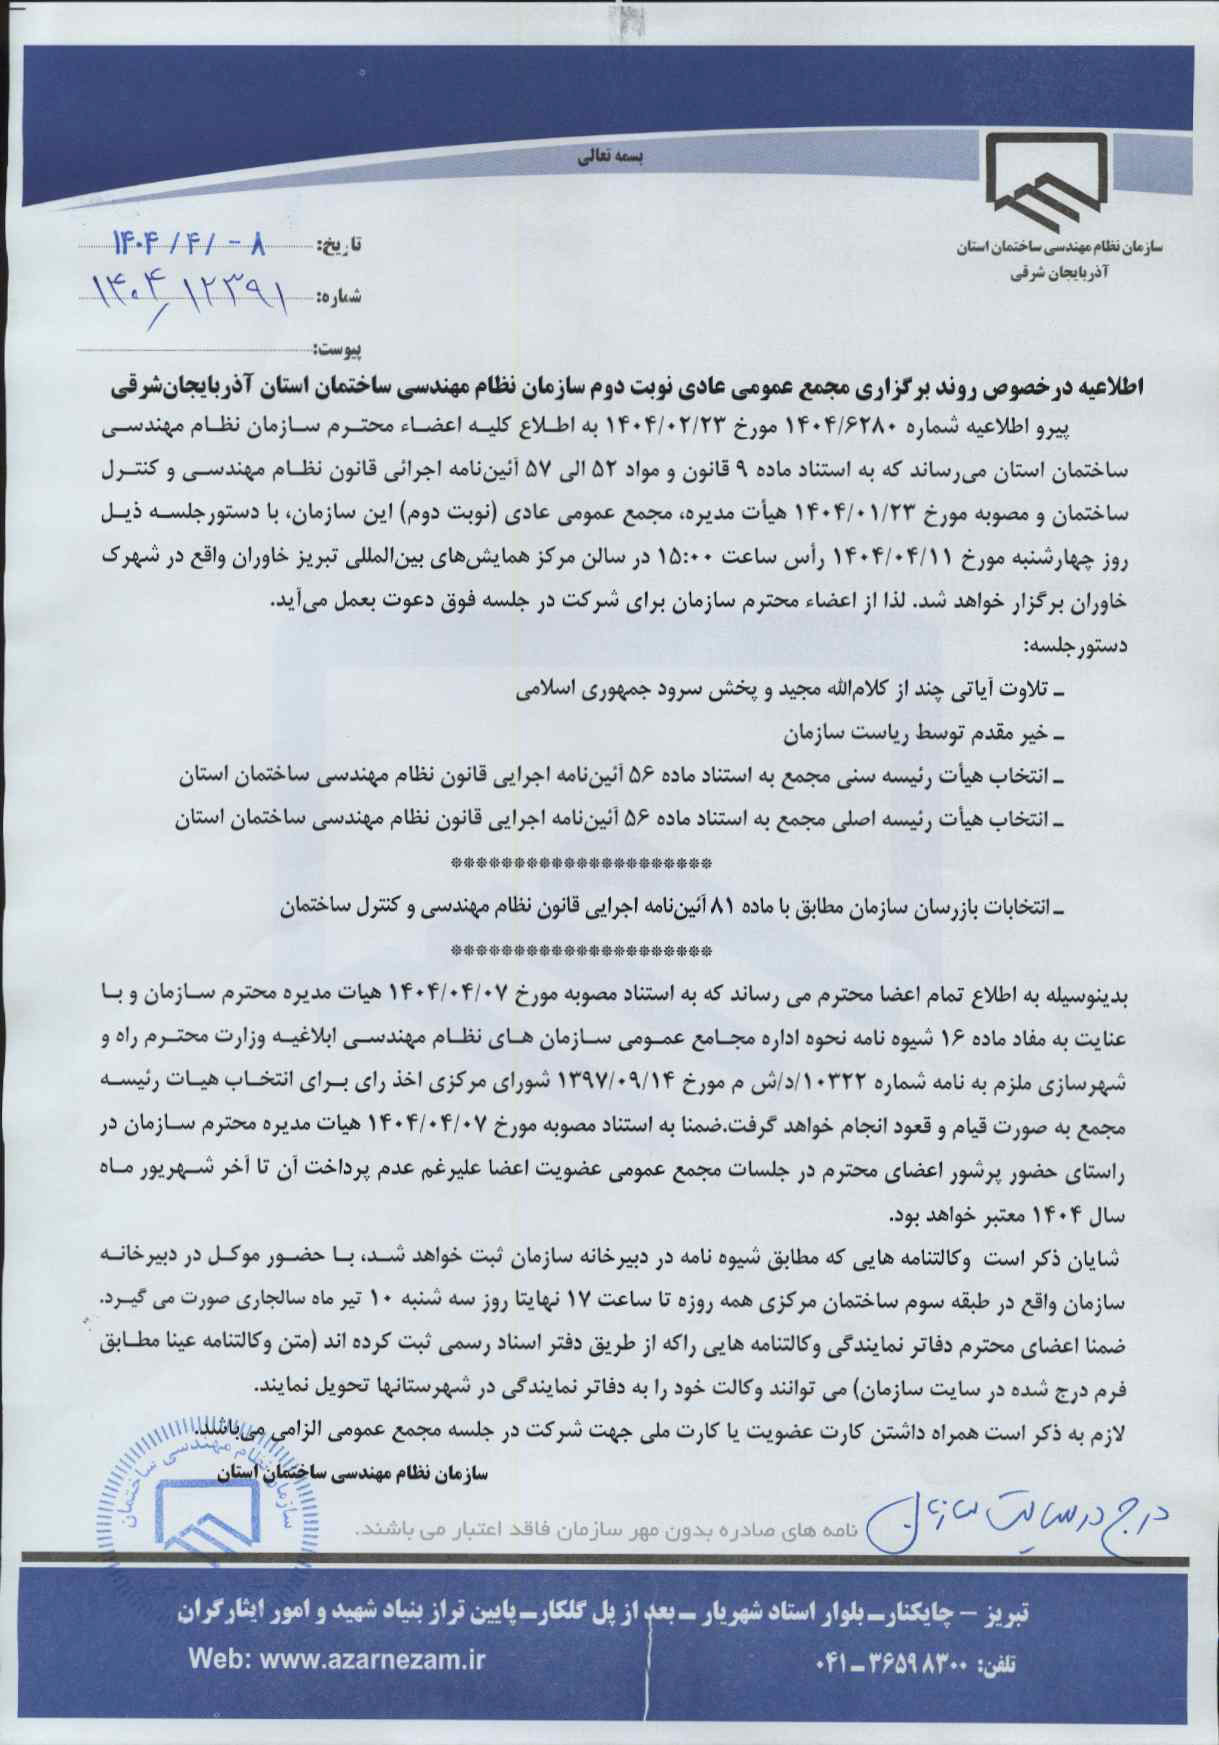 بسمه تعالی
سازمان نظام مهندسی ساختمان استان
آذربایجان شرقی
تاریخ: ۱۴۰۴/۴/-۸
شماره: ۱۴۰۴/۱۲۳۹۱
پیوست:
اطلاعیه درخصوص روند برگزاری مجمع عمومی عادی نوبت دوم سازمان نظام مهندسی ساختمان استان آذربایجان‌شرقی
پیرو اطلاعیه شماره ۱۴۰۴/۶۲۸۰ مورخ ۱۴۰۴/۰۲/۲۳ به اطلاع کلیه اعضاء محترم سازمان نظام مهندسی
ساختمان استان می‌رساند که به استناد ماده ۹ قانون و مواد ۵۲ الی ۵۷ آئین‌نامه اجرائی قانون نظام مهندسی و کنترل
ساختمان و مصوبه مورخ ۱۴۰۴/۰۱/۲۳ هیأت مدیره، مجمع عمومی عادی (نوبت دوم) این سازمان، با دستورجلسه ذیل
روز چهارشنبه مورخ ۱۴۰۴/۰۴/۱۱ رأس ساعت ۱۵:۰۰ در سالن مرکز همایش‌های بین‌المللی تبریز خاوران واقع در شهرک
خاوران برگزار خواهد شد. لذا از اعضاء محترم سازمان برای شرکت در جلسه فوق دعوت بعمل می‌آید.
دستورجلسه:
ـ تلاوت آیاتی چند از کلام‌الله مجید و پخش سرود جمهوری اسلامی
ـ خیر مقدم توسط ریاست سازمان
ـ انتخاب هیأت رئیسه سنی مجمع به استناد ماده ۵۶ آئین‌نامه اجرایی قانون نظام مهندسی ساختمان استان
ـ انتخاب هیأت رئیسه اصلی مجمع به استناد ماده ۵۶ آئین‌نامه اجرایی قانون نظام مهندسی ساختمان استان
*********************
ـ انتخابات بازرسان سازمان مطابق با ماده ۸۱ آئین‌نامه اجرایی قانون نظام مهندسی و کنترل ساختمان
*********************
بدینوسیله به اطلاع تمام اعضا محترم می رساند که به استناد مصوبه مورخ ۱۴۰۴/۰۴/۰۷ هیات مدیره محترم سازمان و با
عنایت به مفاد ماده ۱۶ شیوه نامه نحوه اداره مجامع عمومی سازمان های نظام مهندسی ابلاغیه وزارت محترم راه و
شهرسازی ملزم به نامه شماره ۱۰۳۲۲/د/ش م مورخ ۱۳۹۷/۰۹/۱۴ شورای مرکزی اخذ رای برای انتخاب هیات رئیسه
مجمع به صورت قیام و قعود انجام خواهد گرفت.ضمنا به استناد مصوبه مورخ ۱۴۰۴/۰۴/۰۷ هیات مدیره محترم سازمان در
راستای حضور پرشور اعضای محترم در جلسات مجمع عمومی عضویت اعضا علیرغم عدم پرداخت آن تا آخر شهریور ماه
سال ۱۴۰۴ معتبر خواهد بود.
شایان ذکر است وکالتنامه هایی که مطابق شیوه نامه در دبیرخانه سازمان ثبت خواهد شد، با حضور موکل در دبیرخانه
سازمان واقع در طبقه سوم ساختمان مرکزی همه روزه تا ساعت ۱۷ نهایتا روز سه شنبه ۱۰ تیر ماه سالجاری صورت می گیرد.
ضمنا اعضای محترم دفاتر نمایندگی وکالتنامه هایی راکه از طریق دفتر اسناد رسمی ثبت کرده اند (متن وکالتنامه عینا مطابق
فرم درج شده در سایت سازمان) می توانند وکالت خود را به دفاتر نمایندگی در شهرستانها تحویل نمایند.
لازم به ذکر است همراه داشتن کارت عضویت یا کارت ملی جهت شرکت در جلسه مجمع عمومی الزامی می‌باشد.
سازمان نظام مهندسی ساختمان استان
سازمان نظام مهندسی ساختمان
درج در سایت سازمان
نامه های صادره بدون مهر سازمان فاقد اعتبار می باشند.
تبریز – چایکنارـ بلوار استاد شهریار ـ بعد از پل گلکارـ پایین تراز بنیاد شهید و امور ایثارگران
تلفن: ۳۶۵۹۸۳۰۰ـ۰۴۱
Web: www.azarnezam.ir